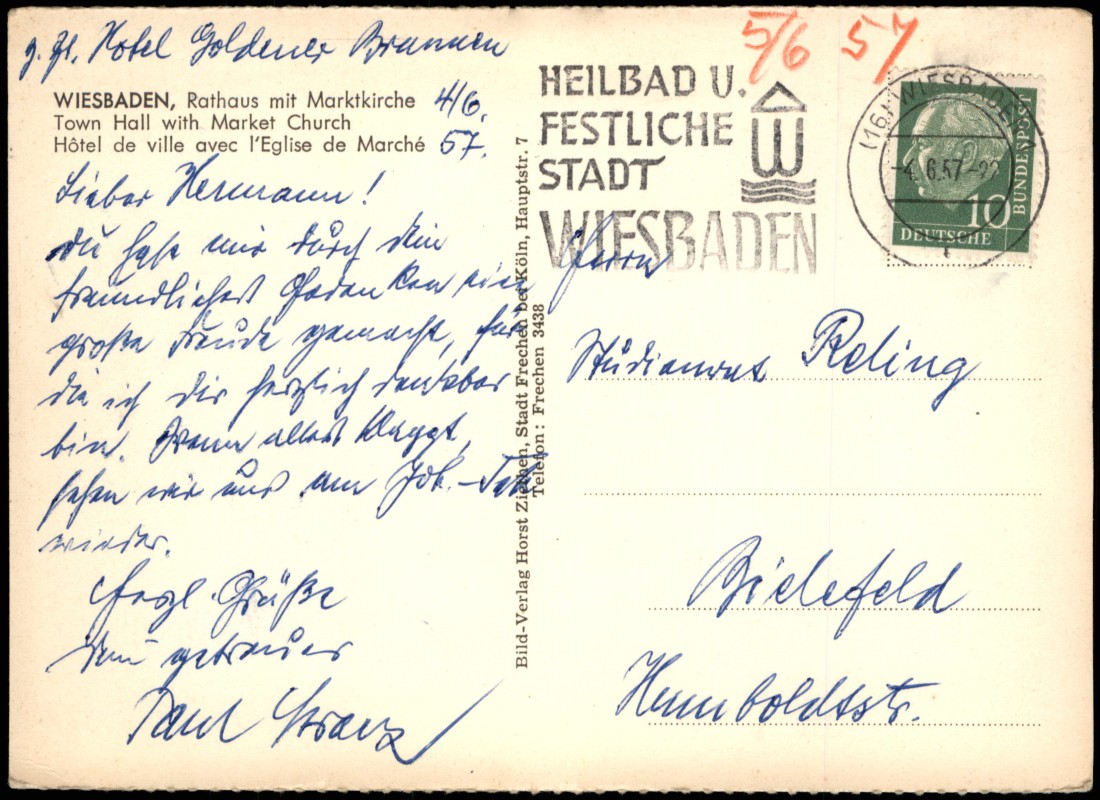 z. Zt. Hotel Goldener Brunnen
WIESBADEN, Rathaus mit Marktkirche
Town Hall with Market Church
Hôtel de ville avec l'Eglise de Marché
4/6.
57.
Lieber Hermann!
Du hast mir durch dein
freundliches Gedenken eine
große Freude gemacht, für
die ich dir herzlich dankbar
bin. Wenn alles klappt,
sehen wir uns am Joh.-Tag
wieder.
Herzl. Grüße
dein getreuer
Paul
Bild-Verlag Horst Ziethen, Stadt Frechen bei Köln, Hauptstr. 7
Telefon: Frechen 3438
5/6 57
HEILBAD U.
FESTLICHE
STADT
WIESBADEN
W
(16) WIESBADEN
-4.6.57-
10
DEUTSCHE
BUNDESPOST
Herrn
Studienrat Reling
Bielefeld
Humboldtstr.